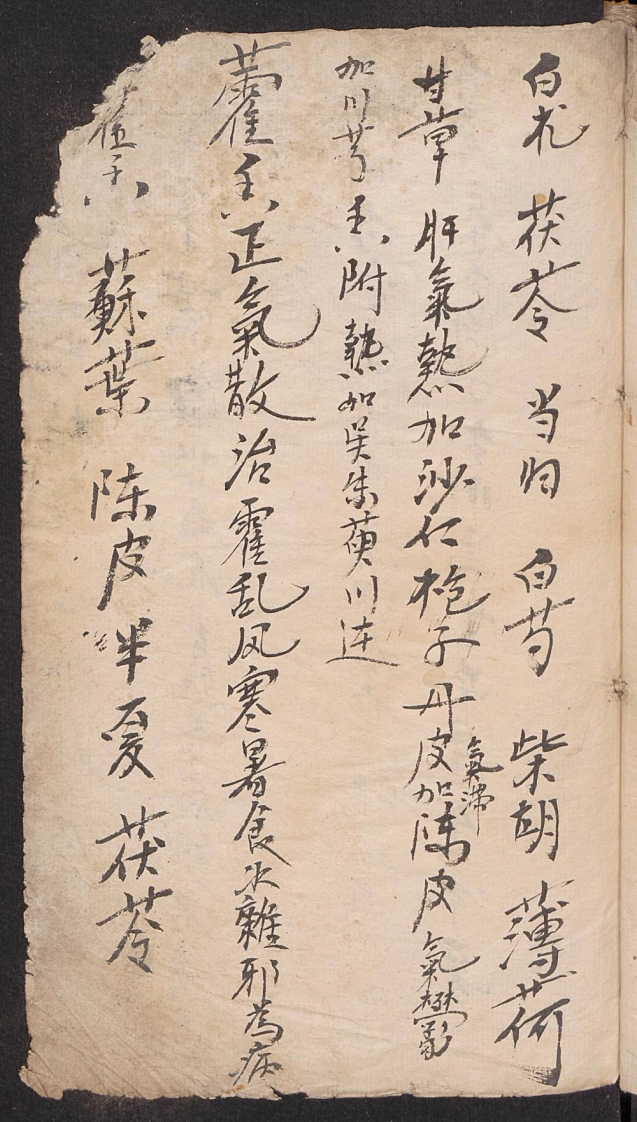 白朮 茯苓 当归 白芍 柴胡 薄荷
甘草 肝氣熱加沙仁枪子丹皮氣滞加陈皮氣鬱
加川芎香附熱加吴朱萸川连
藿香正氣散治霍乱风寒暑食水雜邪為病
藿香 蘇葉 陈皮 半夏 茯苓